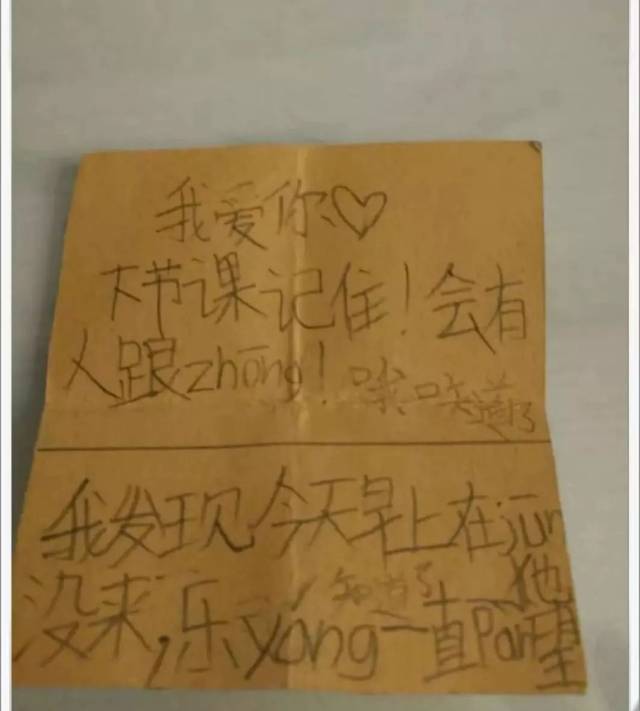 我爱你♡
下节课记住!会有
人跟zhōng!哦 知道了
我发现今天早上在jūn
没来,乐yáng一直pàn望
知道了
他